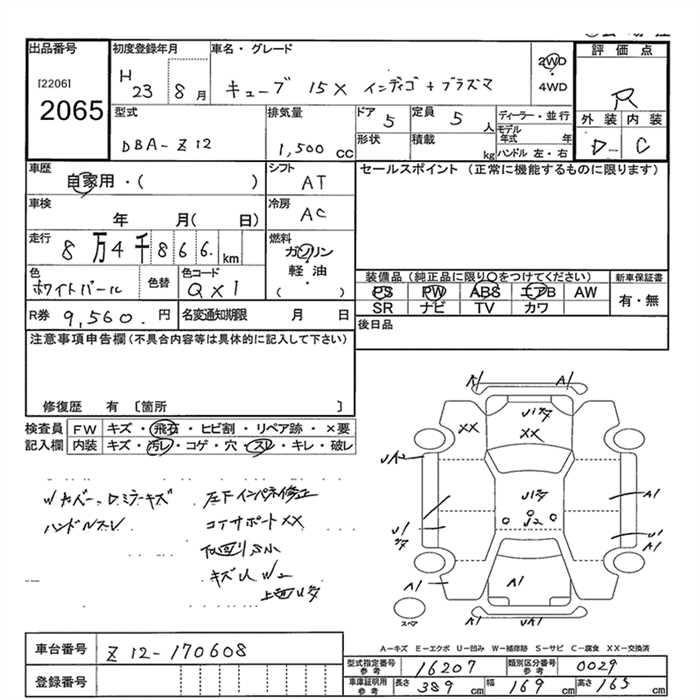 出品番号
[2206]
2065
初度登録年月
H 23 8 月
車名・グレード
キューブ 15X インディゴ+プラズマ
2WD
4WD
評価点
R
外装 内装
D C
型式
DBA-Z12
排気量
1,500 CC
ドア 5
定員 5 人
形状
積載 kg
ディーラー・並行
モデル年式 年
ハンドル 左・右
車歴
自家用・( )
シフト
AT
車検
年 月( 日)
冷房
AC
走行
8万4千866 km
燃料
ガソリン
軽油
( ・ )
色
ホワイトパール
色替
色コード
QX1
R券 9,560. 円
名変通知期限 月 日
セールスポイント (正常に機能するものに限ります)
装備品 (純正品に限り○をつけてください)
PS PW ABS エアB AW
SR ナビ TV カワ
新車保証書
有・無
後日品
注意事項申告欄(不具合内容等は具体的に記入して下さい)
修復歴 有 〔箇所 〕
検査員
記入欄
FW キズ・飛石・ヒビ割・リペア跡・×要
内装 キズ・汚レ・コゲ・穴・スレ・キレ・破レ
ハンドルスレ
左Fインパネ修正
コアサポートXX
A1
A1
XX
XX
A1
A1
A1
A1
A1
スペア
A-キズ E-エクボ U-凹み W-補修跡 S-サビ C-腐食 XX-交換済
車台番号 Z12-170608
登録番号
型式指定番号 参考 16207
類別区分番号 参考 0029
車庫証明用 参考 長さ 389 cm 幅 169 cm 高さ 165 cm